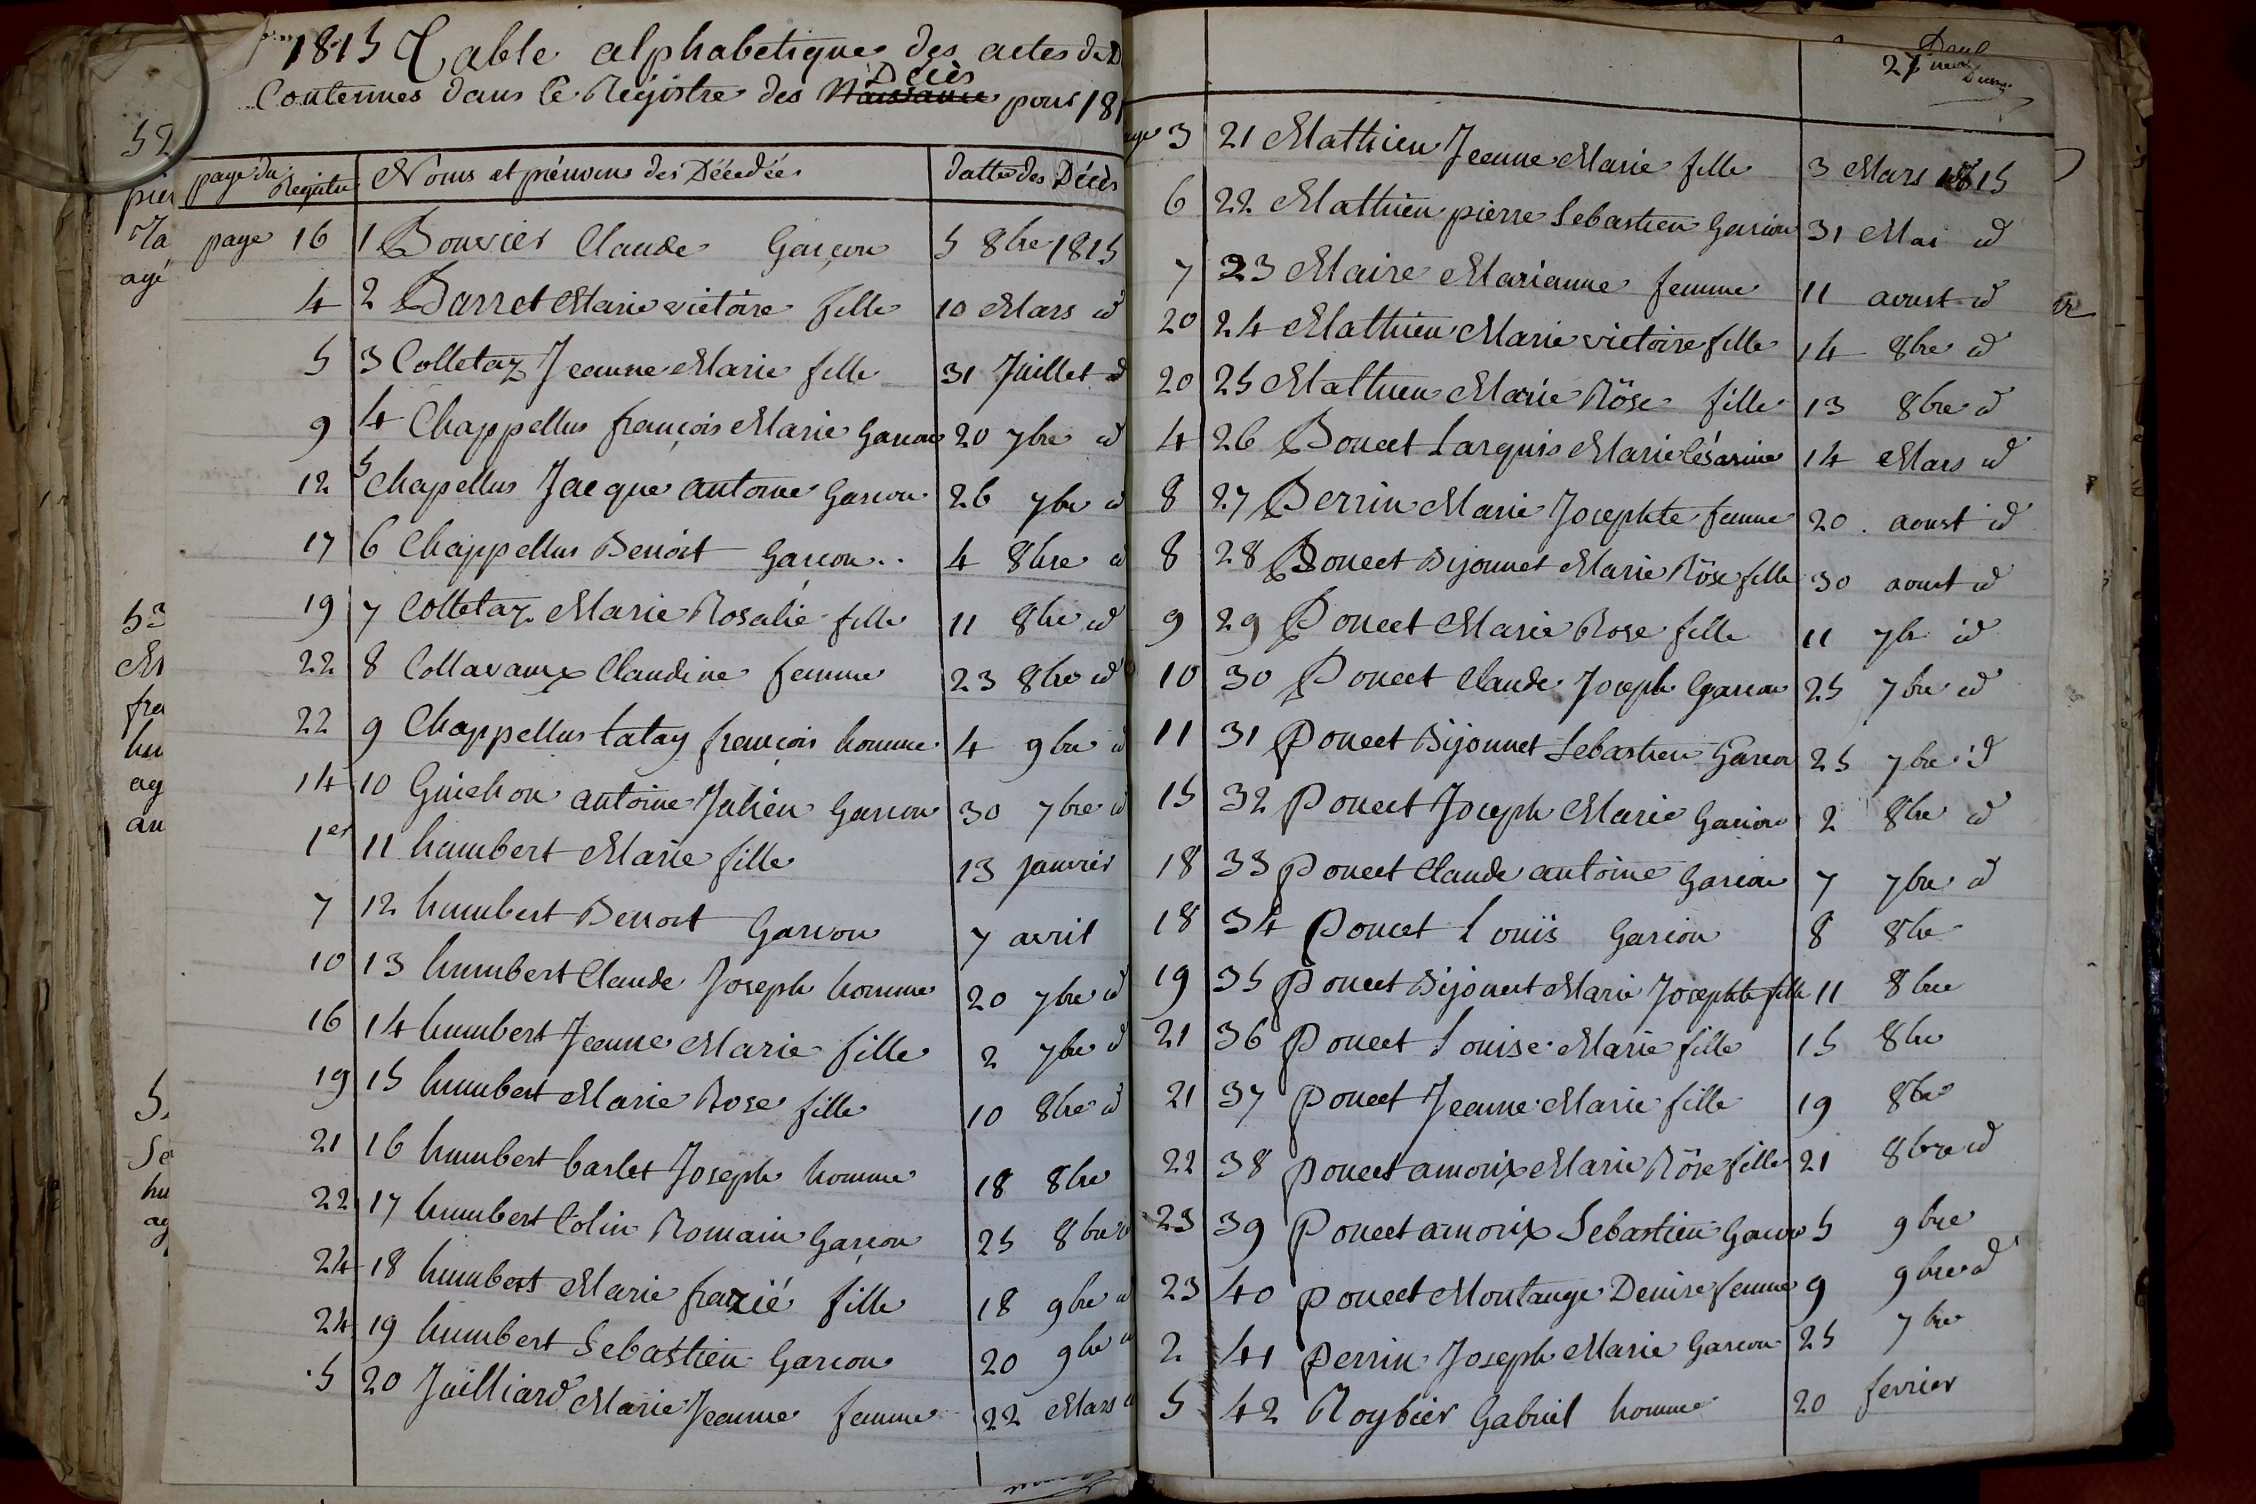 1815 Table alphabetique des actes de D
Décès
Contennes dans le Régistre des Naissance pour 181
page du Registre Noms et prénoms des Décédés dattes des Décès
page 16 1 Bouvier Claude Garçon 5 8bre 1815
4 2 Barret Marie victoire fille 10 Mars id
5 3 Colletaz Jeanne Marie fille 31 Juillet id
9 4 Chappellus françois Marie Garcon 20 7bre id
12 5 Chapellus Jacque antoine Garcon 26 7bre id
17 6 Chappellus Benoit Garcon 4 8bre id
19 7 Colletaz Marie Rosalie fille 11 8bre id
22 8 Collavaux Claudine femme 23 8bre id
22 9 Chappellus tatay françois homme 4 9bre id
14 10 Guichon antoine Julien Garcon 30 7bre id
1er 11 humbert Marie fille 13 janvier
7 12 humbert Benoit Garcon 7 avril
10 13 humbert Claude Joseph homme 20 7bre id
16 14 humbert Jeanne Marie fille 2 7bre id
19 15 humbert Marie Rose fille 10 8bre id
21 16 humbert barlet Joseph homme 18 8bre
22 17 humbert Colin Romain Garçon 25 8bre
24 18 humbert Marie franzié fille 18 9bre id
24 19 humbert Sebastien Garcon 20 9bre
5 20 Juilliard Marie Jeanne femme 22 Mars
27
3 21 Mathieu Jeanne Marie fille 3 Mars 1815
6 22 Mathieu pierre Sebastien Garcon 31 Mai id
7 23 Maire Marianne femme 11 aoust id
20 24 Mathieu Marie victoire fille 14 8bre id
20 25 Mathieu Marie Rôse fille 13 8bre id
4 26 Poncet Larquis Marie Césarine 14 Mars id
8 27 Perrin Marie Josephte femme 20 aoust id
8 28 Poncet Bijonnet Marie Rôse fille 30 aoust id
9 29 Poncet Marie Rose fille 11 7br id
10 30 Poncet Claude Joseph Garcon 25 7bre id
11 31 Poncet Bijonnet Sebastien Garcon 25 7bre id
15 32 Poncet Joseph Marie Garcon 2 8bre id
18 33 Poncet Claude antoine Garcon 7 7bre id
18 34 Poncet Louis Garcon 8 8bre
19 35 Poncet Bijonnet Marie Josephte fille 11 8bre
21 36 Poncet Louise Marie fille 15 8bre
21 37 Poncet Jeanne Marie fille 19 8bre
22 38 Poncet amoux Marie Rôse fille 21 8bre id
23 39 Poncet amoux Sebastien Garcon 5 9bre
23 40 Poncet Montange Denise femme 9 9bre id
2 41 Perrin Joseph Marie Garcon 25 7bre
5 42 Roybier Gabriel homme 20 fevrier